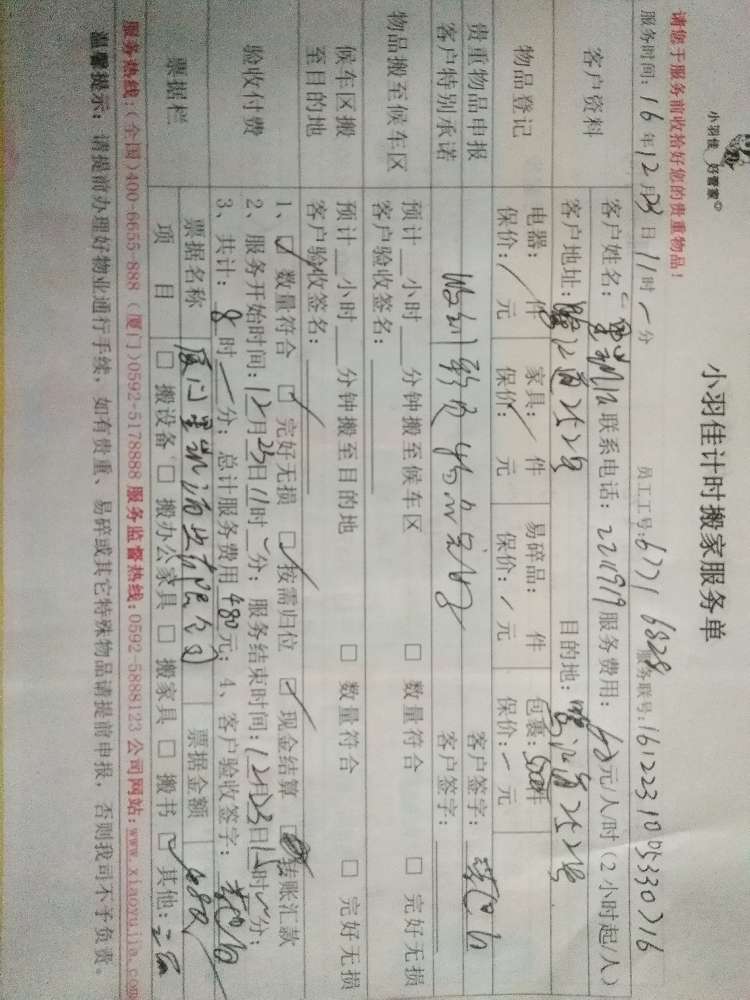 小羽佳 好管家
小羽佳计时搬家服务单
请您于服务前收拾好您的贵重物品！
服务时间：16年12月23日11时 分 员工工号：6771 6828 服务联号：161223100533 0716
客户资料 客户姓名： 联系电话：2211919 服务费用：60元/人/时（2小时起/人）
客户地址：鹭江道252号 目的地：鹭江道252号
物品登记 电器：/件 家具：/件 易碎品： 件 包裹：500件
保价：/元 保价：/元 保价：/元 保价：/元
贵重物品申报 客户签字：
客户特别承诺 客户签字：
物品搬至候车区 预计 小时 分钟搬至候车区 □ 数量符合 □ 完好无损
客户验收签名：
候车区搬至目的地 预计 小时 分钟搬至目的地 □ 数量符合 □ 完好无损
客户验收签名：
验收付费 1、☑ 数量符合 ☑ 完好无损 ☑ 按需归位 ☑ 现金结算 转账汇款
2、服务开始时间：12月23日11时 分；服务结束时间：12月23日15时 分；
3、共计：8时 分；总计服务费用480元；4、客户验收签字：
票据栏 票据名称 厦门 有限公司 票据金额 480
项目 □ 搬设备 □ 搬办公家具 □ 搬家具 □ 搬书 ☑ 其他：
服务热线：(全国)400-6655-888 (厦门)0592-5178888 服务监督热线：0592-5888123 公司网站：www.xiaoyujia.com
温馨提示：请提前办理好物业通行手续，如有贵重、易碎或其它特殊物品请提前申报，否则我司不予负责。